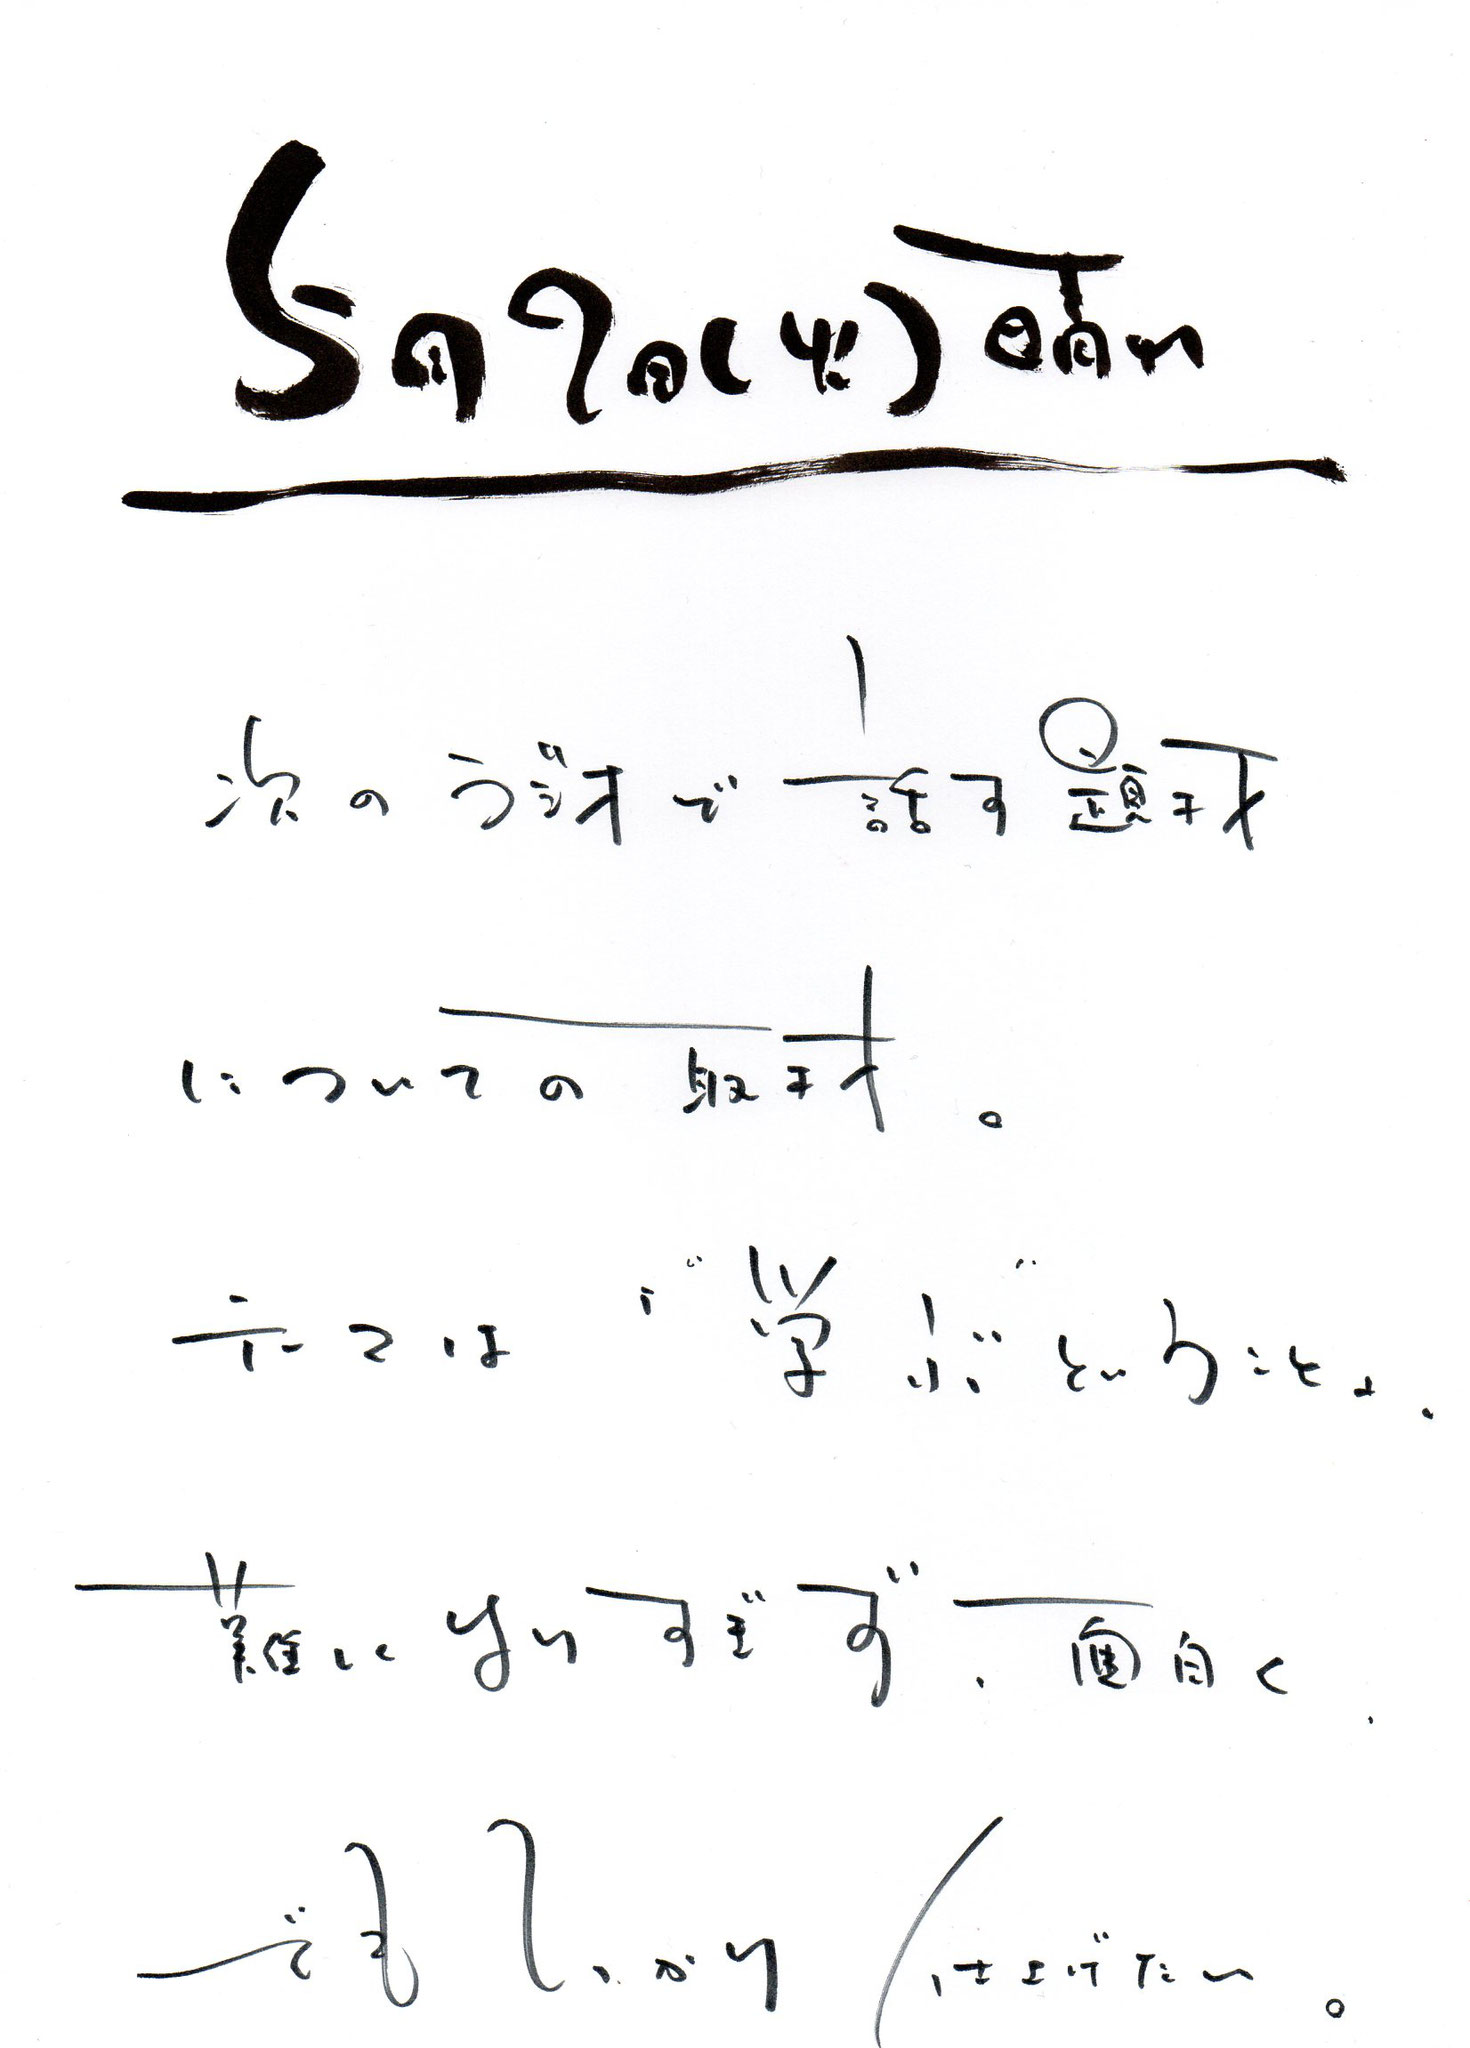 5月9日(火) 晴れ
次のラジオで話す題材
についての取材。
テーマは“学ぶ”ということ、
難しくなりすぎず、面白く、
でもしっかり仕上げたい。